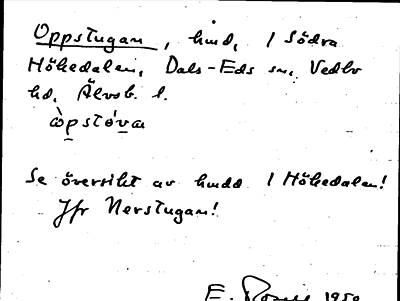 Oppstugan, hmd, i Södra
Hökedalen, Dals-Eds sn, Vedbo
hd, Älvsb. l.
òpstúva
Se översikt av hmdd i Hökedalen!
Jfr Nerstugan!
E. 1950